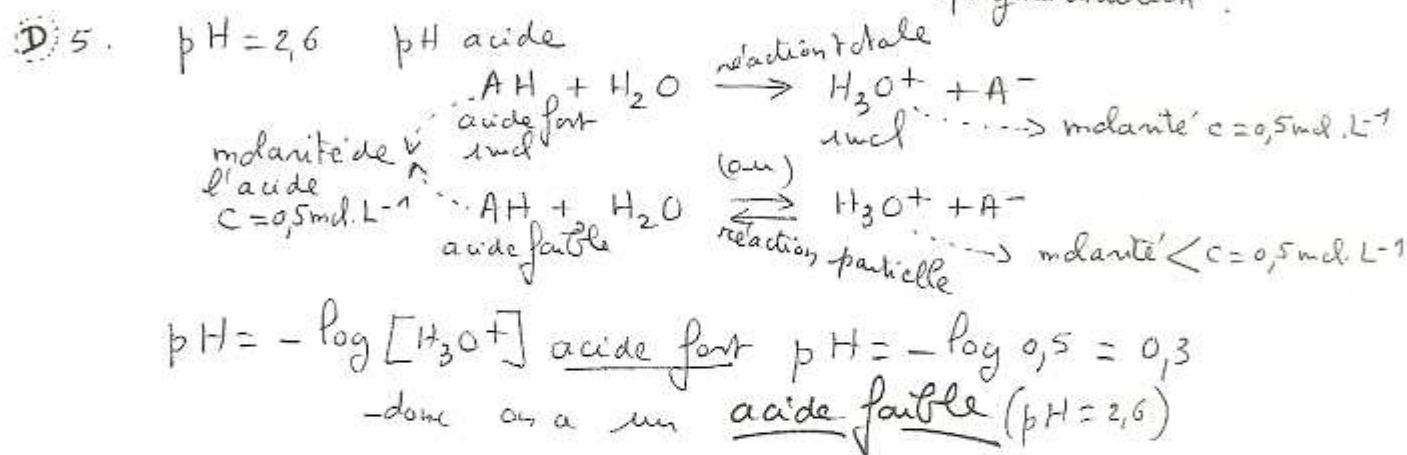 D 5. pH = 2,6 pH acide
réaction totale
AH + H₂O → H₃O⁺ + A⁻
acide fort
1 mol 1 mol ...> molarité c = 0,5 mol.L⁻¹
molarité de l'acide
C = 0,5 mol.L⁻¹
(ou)
AH + H₂O ⇌ H₃O⁺ + A⁻
acide faible réaction partielle ...> molarité < c = 0,5 mol.L⁻¹
pH = - log [H₃O⁺] acide fort pH = - log 0,5 = 0,3
-donc on a un acide faible (pH = 2,6)